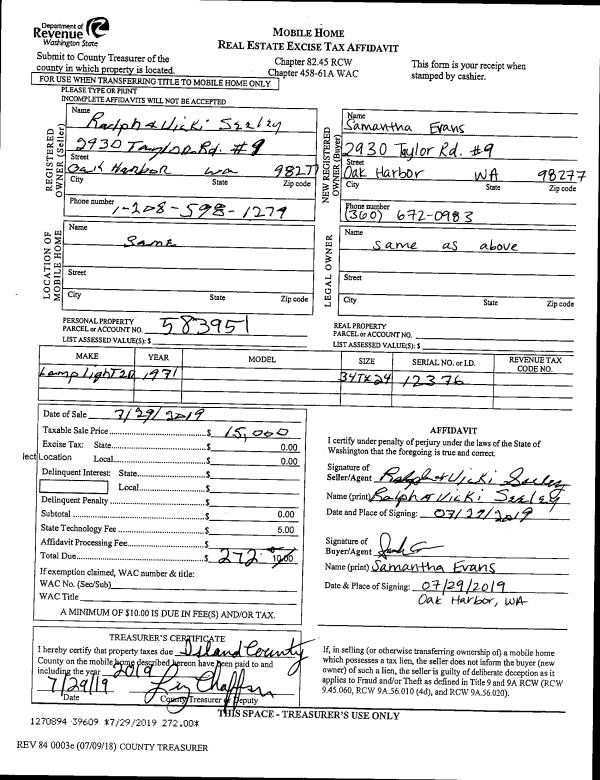 Department of
Revenue
Washington State
MOBILE HOME
REAL ESTATE EXCISE TAX AFFIDAVIT
Submit to County Treasurer of the
county in which property is located.
Chapter 82.45 RCW
Chapter 458-61A WAC
This form is your receipt when
stamped by cashier.
FOR USE WHEN TRANSFERRING TITLE TO MOBILE HOME ONLY
PLEASE TYPE OR PRINT
INCOMPLETE AFFIDAVITS WILL NOT BE ACCEPTED
REGISTERED OWNER (Seller)
Name
Ralph & Vicki Seeley
2930 Taylor Rd. #9
Street
Oak Harbor wa 98277
City State Zip code
Phone number
1-208-598-1279
NEW REGISTERED OWNER (Buyer)
Name
Samantha Evans
2930 Taylor Rd. #9
Street
Oak Harbor WA 98277
City State Zip code
Phone number
(360) 672-0983
LOCATION OF MOBILE HOME
Name
Same
Street
City State Zip code
LEGAL OWNER
Name
same as above
Street
City State Zip code
PERSONAL PROPERTY
PARCEL or ACCOUNT NO. 583951
LIST ASSESSED VALUE(S): $
REAL PROPERTY
PARCEL or ACCOUNT NO.
LIST ASSESSED VALUE(S): $
MAKE YEAR MODEL SIZE SERIAL NO. or I.D. REVENUE TAX CODE NO.
1971 12376
Date of Sale 7/29/2019
Taxable Sale Price $ 15,000
Excise Tax: State $ 0.00
lect Location Local $ 0.00
Delinquent Interest: State $
Local $
Delinquent Penalty $
Subtotal $ 0.00
State Technology Fee $ 5.00
Affidavit Processing Fee $
Total Due $ 272.00 10.00
If exemption claimed, WAC number & title:
WAC No. (Sec/Sub)
WAC Title
A MINIMUM OF $10.00 IS DUE IN FEE(S) AND/OR TAX.
AFFIDAVIT
I certify under penalty of perjury under the laws of the State of
Washington that the foregoing is true and correct.
Signature of
Seller/Agent Ralph & Vicki Seeley
Name (print) Ralph & Vicki Seeley
Date and Place of Signing: 07/29/2019
Signature of
Buyer/Agent
Name (print) Samantha Evans
Date & Place of Signing: 07/29/2019
Oak Harbor, WA
TREASURER'S CERTIFICATE
I hereby certify that property taxes due Island County
County on the mobile home described hereon have been paid to and
including the year 2019
7/29/19
Date County Treasurer or Deputy
If, in selling (or otherwise transferring ownership of) a mobile home
which possesses a tax lien, the seller does not inform the buyer (new
owner) of such a lien, the seller is guilty of deliberate deception as it
applies to Fraud and/or Theft as defined in Title 9 and 9A RCW (RCW
9.45.060, RCW 9A.56.010 (4d), and RCW 9A.56.020).
THIS SPACE - TREASURER'S USE ONLY
1270894 39609 *7/29/2019 272.00*
REV 84 0003e (07/09/18) COUNTY TREASURER